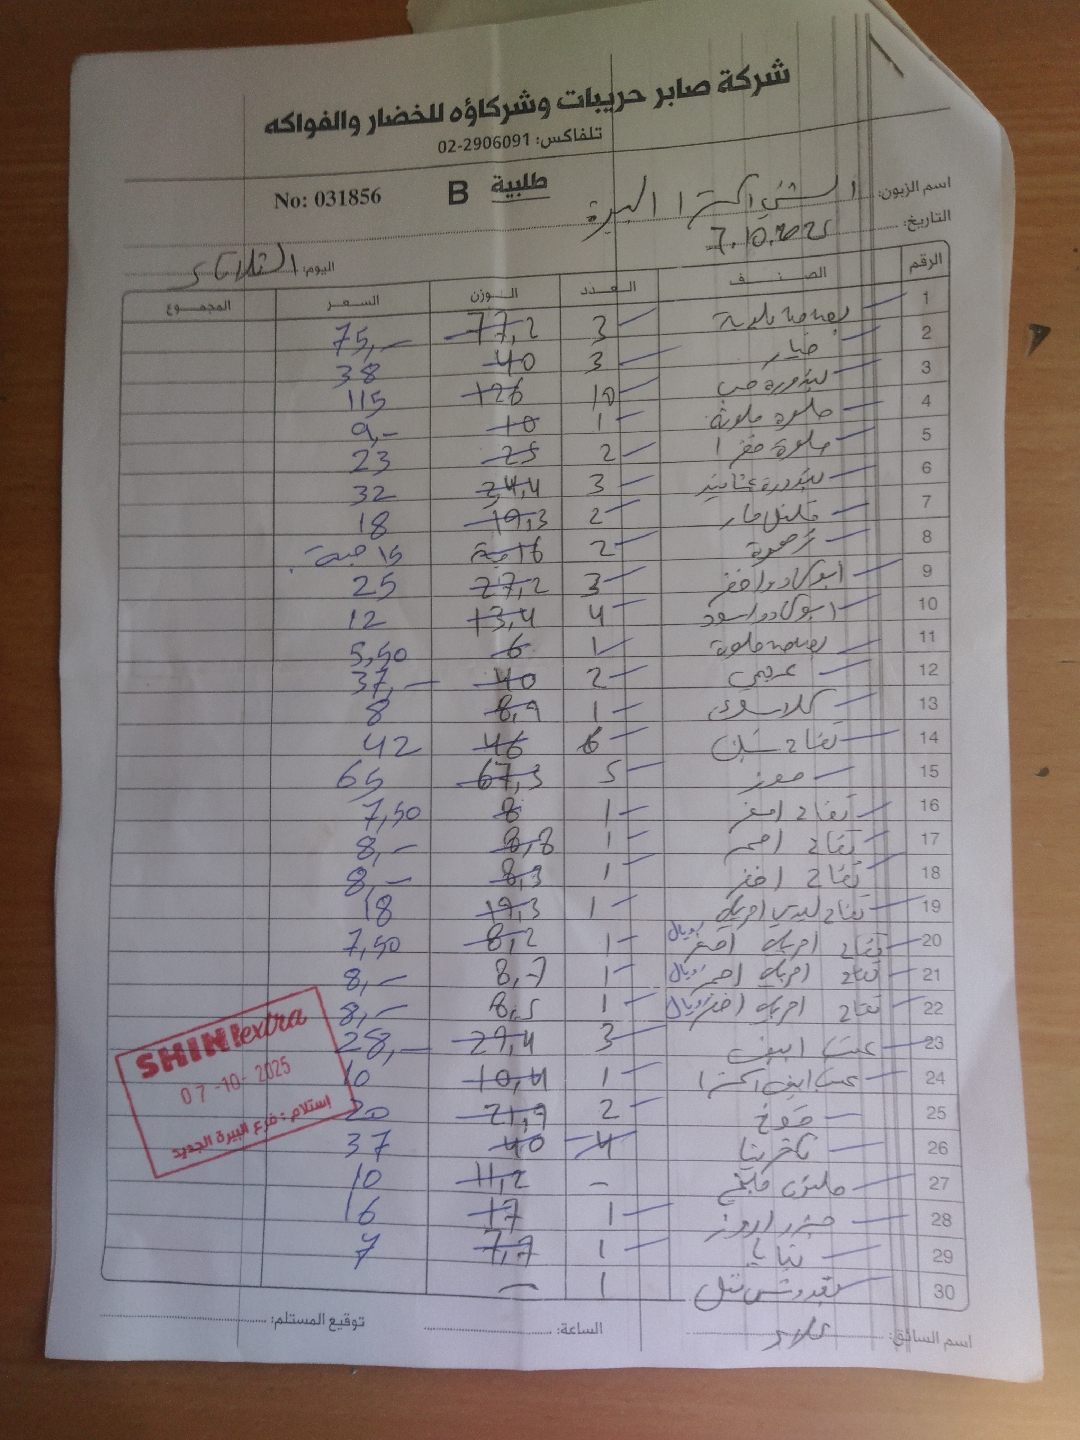 شركة صابر حريبات وشركاؤه للخضار والفواكه
تلفاكس: 02-2906091
طلبية B No: 031856
اسم الزبون: الشني اكسترا البيرة
التاريخ: 7.10.2025
اليوم: الثلاثاء
الرقم الصنف العدد الوزن السعر المجموع
1 3 77,2 75,-
2 خيار 3 40 38
3 بندورة حب 10 126 115
4 حلوة ملونة 1 10 9,-
5 حلوة خضرا 2 25 23
6 بندورة عناقيد 3 24,4 32
7 فلفل حار 2 19,3 18
8 2 16 حبة 15 حبة
9 ابوكادو اخضر 3 27,2 25
10 ابوكادو اسود 4 13,4 12
11 1 6 5,50
12 2 40 37,-
13 1 8,9 8
14 تفاح سكري 6 46 42
15 موز 5 67,3 65
16 تفاح اصفر 1 8 7,50
17 تفاح احمر 1 8,8 8,-
18 تفاح اخضر 1 8,3 8,-
19 تفاح ليدي امريكي 1 19,3 18
20 تفاح امريكي اصفر رويال 1 8,2 7,50
21 تفاح امريكي احمر رويال 1 8,7 8,-
22 تفاح امريكي اخضر رويال 1 8,5 8,-
23 عنب ابيض 3 29,4 28,-
24 عنب ابيض اكسترا 1 10,4 10
25 خوخ 2 21,9 20
26 4 40 37
27 - 11,2 10
28 1 17 16
29 بابايا 1 7,7 7
30 بقدونس تتل 1 -
SHINI extra
07-10-2025
إستلام : فرع البيرة الجديد
اسم السائق: علاء
الساعة:
توقيع المستلم: